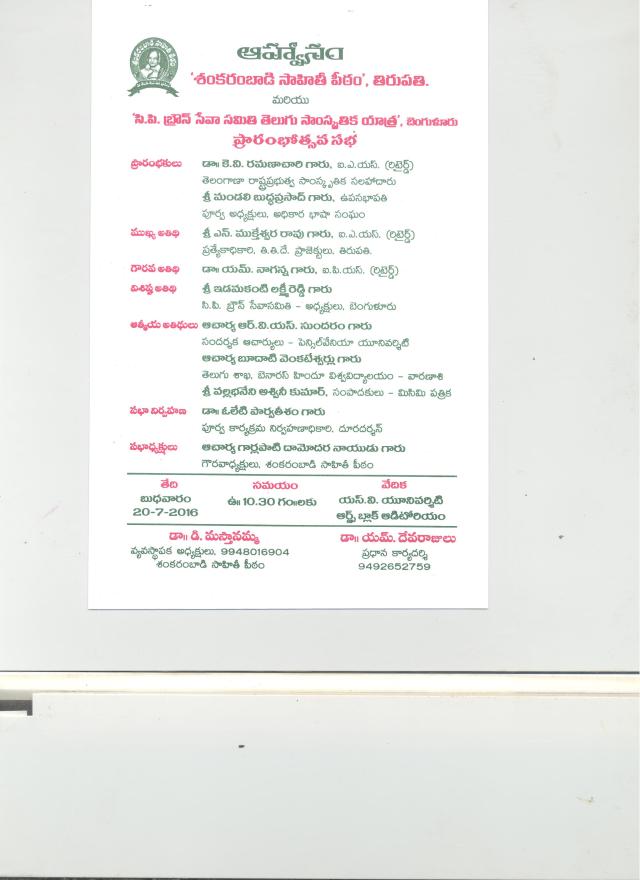 ఆహ్వానం
'శంకరంబాడి సాహితీ పీఠం', తిరుపతి.
మరియు
'సి.పి. బ్రౌన్ సేవా సమితి తెలుగు సాంస్కృతిక యాత్ర', బెంగుళూరు
ప్రారంభోత్సవ సభ
ప్రారంభకులు డా॥ కె.వి. రమణాచారి గారు, ఐ.ఎ.యస్. (రిటైర్డ్)
తెలంగాణా రాష్ట్రప్రభుత్వ సాంస్కృతిక సలహాదారు
శ్రీ మండలి బుద్ధప్రసాద్ గారు, ఉపసభాపతి
పూర్వ అధ్యక్షులు, అధికార భాషా సంఘం
ముఖ్య అతిథి శ్రీ ఎన్. ముక్తేశ్వర రావు గారు, ఐ.ఎ.యస్. (రిటైర్డ్)
ప్రత్యేకాధికారి, తి.తి.దే. ప్రాజెక్టులు, తిరుపతి.
గౌరవ అతిథి డా॥ యమ్. నాగన్న గారు, ఐ.పి.యస్. (రిటైర్డ్)
విశిష్ట అతిథి శ్రీ ఇడమకంటి లక్ష్మీరెడ్డి గారు
సి.పి. బ్రౌన్ సేవాసమితి - అధ్యక్షులు, బెంగుళూరు
ఆత్మీయ అతిథులు ఆచార్య ఆర్.వి.యస్. సుందరం గారు
సందర్శక ఆచార్యులు - పెన్సిల్‌వేనియా యూనివర్శిటి
ఆచార్య బూదాటి వెంకటేశ్వర్లు గారు
తెలుగు శాఖ, బెనారస్ హిందూ విశ్వవిద్యాలయం - వారణాశి
శ్రీ వల్లభనేని అశ్వినీ కుమార్, సంపాదకులు - మిసిమి పత్రిక
సభా నిర్వహణ డా॥ ఓలేటి పార్వతీశం గారు
పూర్వ కార్యక్రమ నిర్వహణాధికారి, దూరదర్శన్
సభాధ్యక్షులు ఆచార్య గార్లపాటి దామోదర నాయుడు గారు
గౌరవాధ్యక్షులు, శంకరంబాడి సాహితీ పీఠం
తేది సమయం వేదిక
బుధవారం ఉ॥ 10.30 గం॥లకు యస్.వి. యూనివర్శిటి
20-7-2016 ఆర్ట్స్ బ్లాక్ ఆడిటోరియం
డా॥ డి. మస్తానమ్మ డా॥ యమ్. దేవరాజులు
వ్యవస్థాపక అధ్యక్షులు, 9948016904 ప్రధాన కార్యదర్శి
శంకరంబాడి సాహితీ పీఠం 9492652759